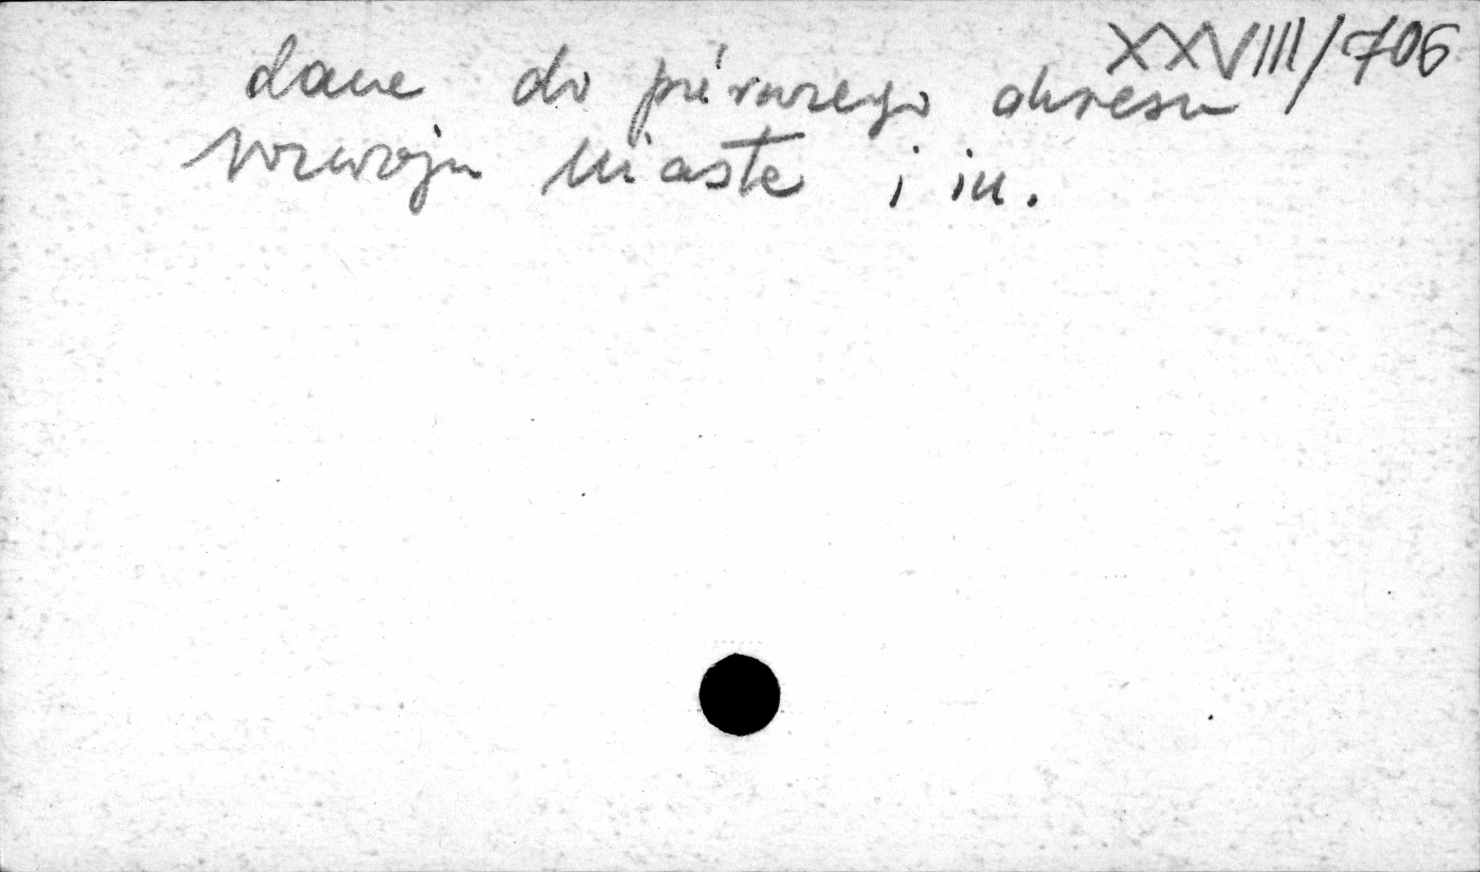 XXVIII/706
dane do pierwszego okresu
rozwoju miasta i in.